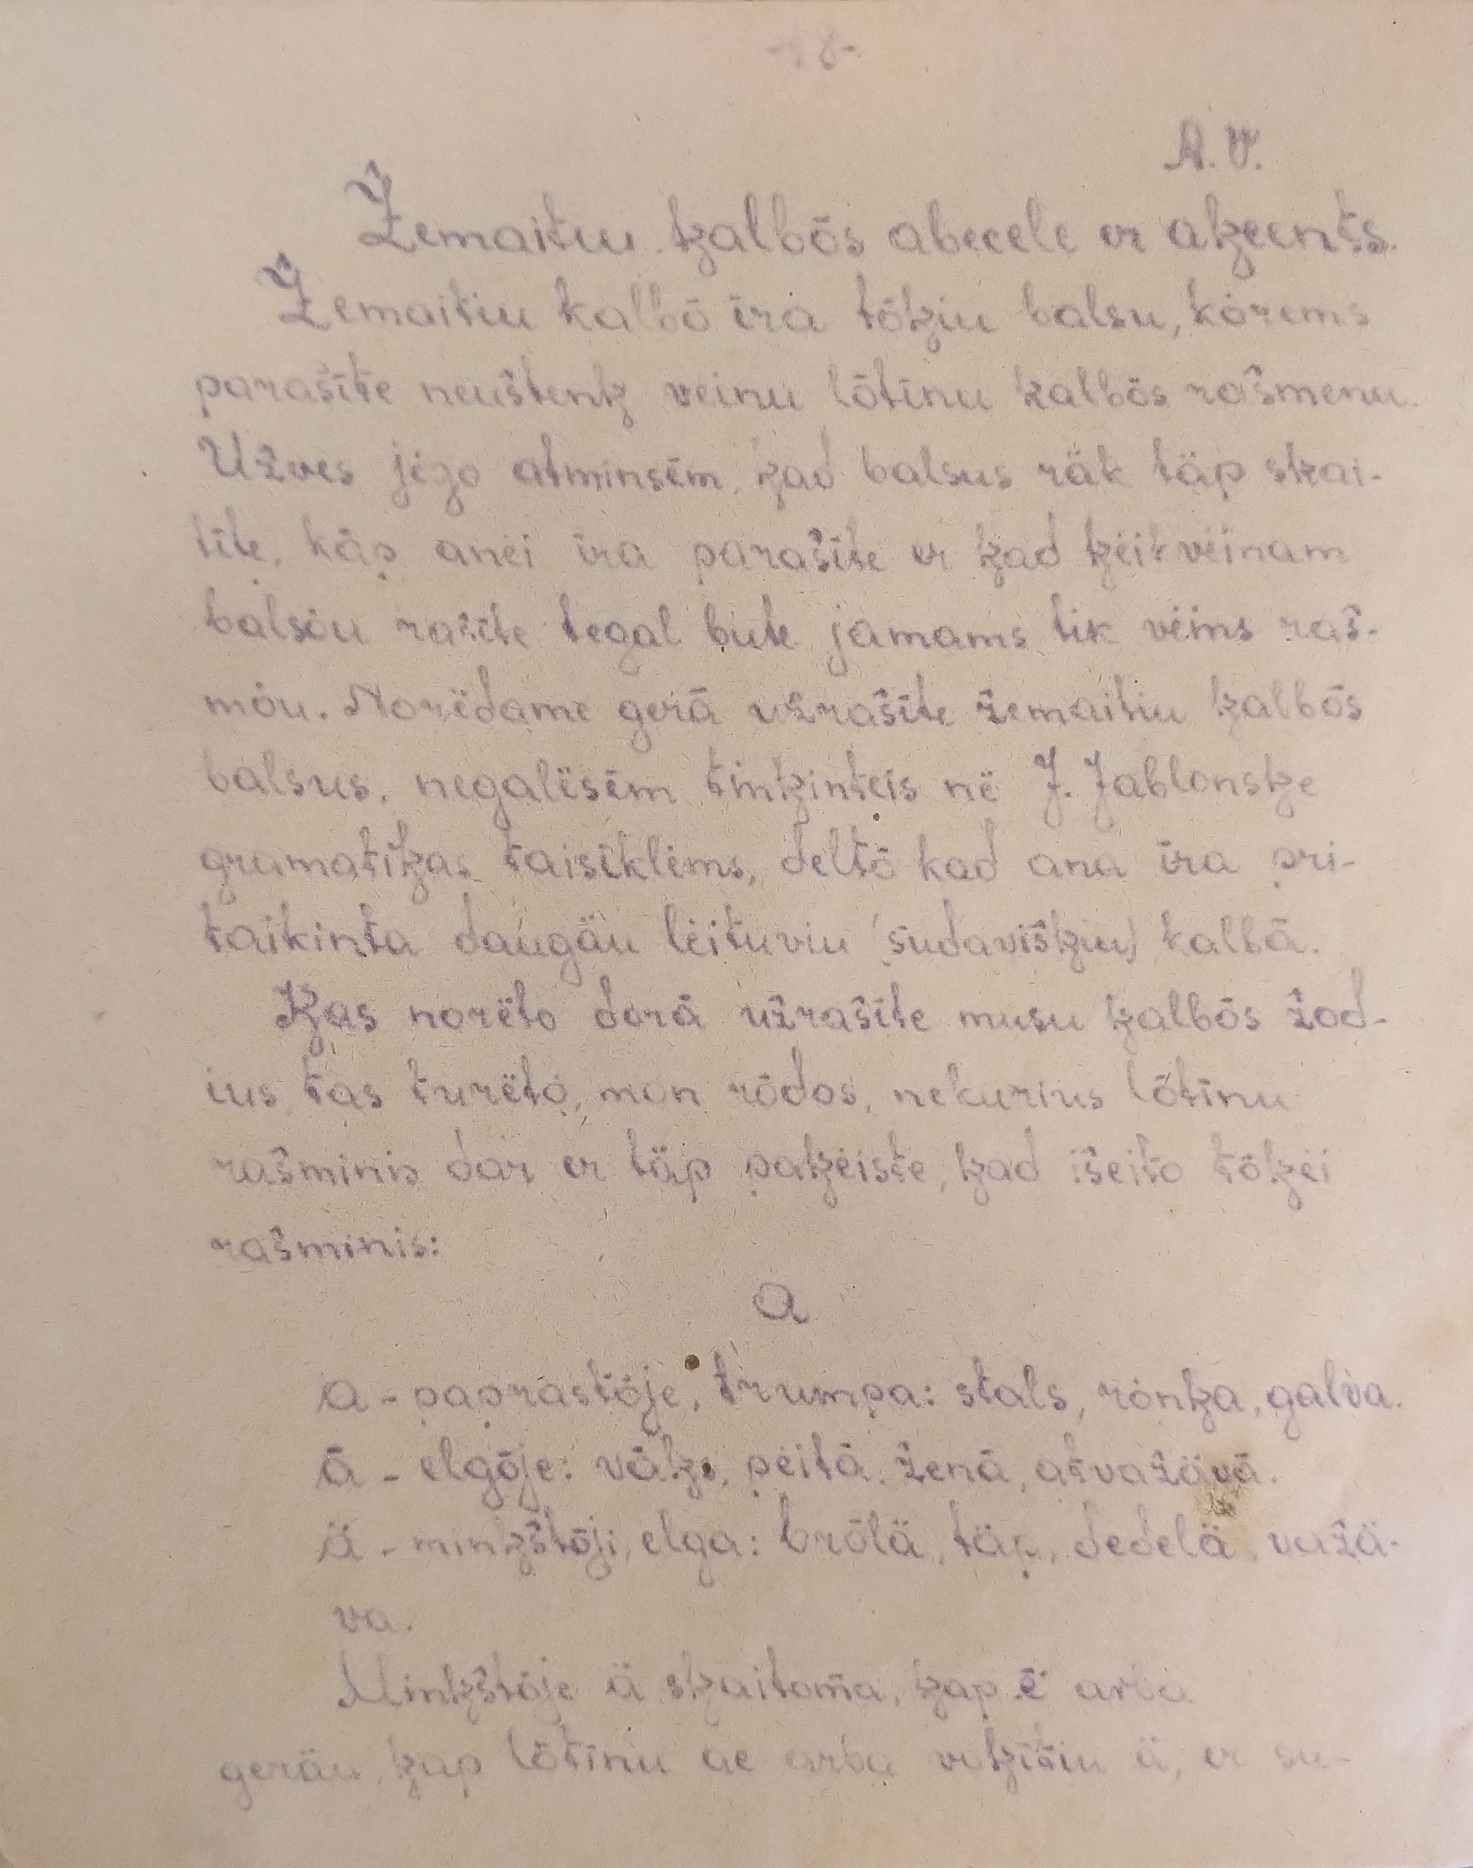 -18-
A. V.
Žemaitiu kalbōs abecele er akcents.
Žemaitiu kalbō īra tōkiu balsu, kōrems
parašīte neuštenk veinu lōtīnu kalbōs rašmenu.
Užves jėgo atminsėm, kad balsus räk täp skai-
tīte, käp anėi īra parašīte er kad kėikvėinam
balsōu rašīte tegal bute jamams tik vėins raš-
mōu. Norëdame gerā užrašīte žemaitiu kalbōs
balsus, negalësėm tinkinteis në J. Jablonske
gramatikas taisīklėms, deltō kad ana īra pri-
taikinta daugäu lėituviu (sudaviškiu) kalbā.
Kas norëto dorā užrašīte musu kalbōs žod-
ius, tas turëto, mon rōdos, nekurius lōtīnu
rašminis dar er täp pakėiste, kad išeito tōkėi
rašminis:
a
a - paprastōje, trumpa: stals, ronka, galva.
ā - elgōje: vāks, pėitā, ženā, atvažävā.
ä - minkštōji, elga: brōlä, täp, dedelä, važä-
va.
Minkštōje ä skaitoma, kap ë arba
geräu, kap lōtīnu ae arba vokītiu ä, er su-